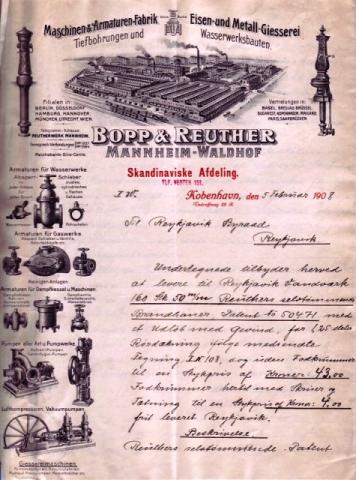 Maschinen- & Armaturen-Fabrik
Eisen- und Metall-Giesserei
Tiefbohrungen und
Wasserwerksbauten.
Filialen in
BERLIN, DÜSSELDORF
HAMBURG, HANNOVER,
MÜNCHEN, UTRECHT, WIEN.
Telegramm-Adresse:
REUTHERWERK MANNHEIM.
Reichsbank-Giro-Conto.
Vertretungen in
BASEL, BRESLAU, BRÜSSEL
BUDAPEST, KOPENHAGEN, MAILAND,
PARIS, SAARBRÜCKEN
BOPP & REUTHER
MANNHEIM-WALDHOF
Skandinaviske Afdeling.
København, den 5 Februar 1908
Til Reykjavik Byraad
Reykjavik.
Undertegnede tilbyder herved
at levere til Reykjavik Vandværk
160 Stk 50 m/m Reuthers selvtømmende
Brandhaner, Patent No 50471 med
et Udløb med Gevind, for 1,25 mtrs
Rørdækning ifølge medsendte
Tegning No 108, dog uden Fodkrummer
til en Stykpris af Kroner: 43,00
Fodkrummer hertil med Skruer og
Pakning til en Stykpris af Kroner: 4,00
frit leveret Reykjavik.
Beskrivelse.
Reuthers selvtømmende Patent
Armaturen für Wasserwerke
Absperr-
Schieber
Armaturen für Gaswerke.
Reiniger-Anlagen
Armaturen für Dampfkessel u. Maschinen
Pumpen aller Art u. Pumpwerke
Luftkompressoren, Vakuumpumpen.
Giessereimaschinen.